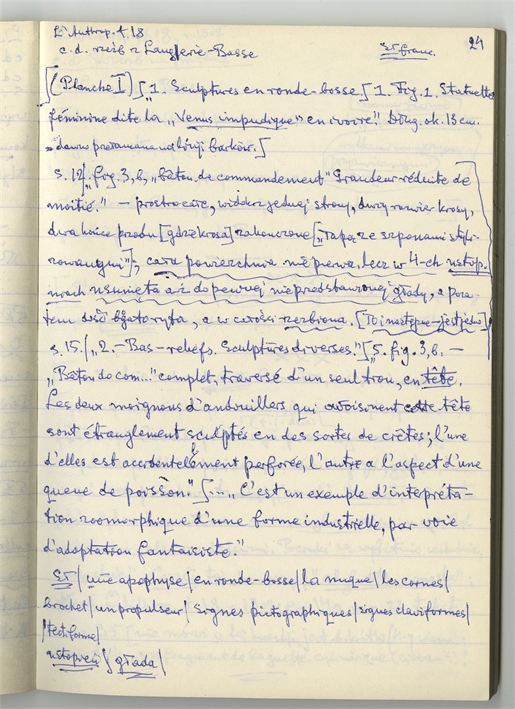 L'Anthrop. t. 18
c.d. rzeźb z Laugerie-Basse
ST. franc.
24
[(Planche I) ["1. Sculptures en ronde-bosse [1. Fig. 1. Statuette
féminine dite la "Venus impudique" en ivoire". Dług. ok. 13 cm.
dawno przełamana
barków.]
s. 12/. fig. 3, b, "bâton de commandement" Grandeur réduite de
moitié." — prostracure, widok z jednej strony,
dwa końce przodu [gdzie krosa] zakończone ["łapą ze szponami
cała powierzchnia niepewna, lecz w 4-ch ustęp-
nach usunięta aż do pewnej głady, a poza
tem dość bogato ryta, a w całości rzeźbiona. [To i następne - jest jedno]
s. 15. /"2. - Bas-reliefs. Sculptures diverses."] "5. fig. 3, b. —
"Bâton de com..." complet, traversé d'un seul trou, en tête.
Les deux moignons d'andouillers qui avoisinent cette tête
sont étranglement sculptés en des sortes de crêtes; l'une
d'elles est accidentellement perforée, l'autre a l'aspect d'une
queue de poisson." [... "C'est un exemple d'intepréta-
tion zoomorphique d'une forme industrielle, par voie
d'adaptation fantaisiste."
ST/ une apophyse / en ronde-bosse / la nuque / les cornes /
brochet / un propulseur / signes pictographiques / signes claviformes /
/ tectiforme /
ustopień / głada /